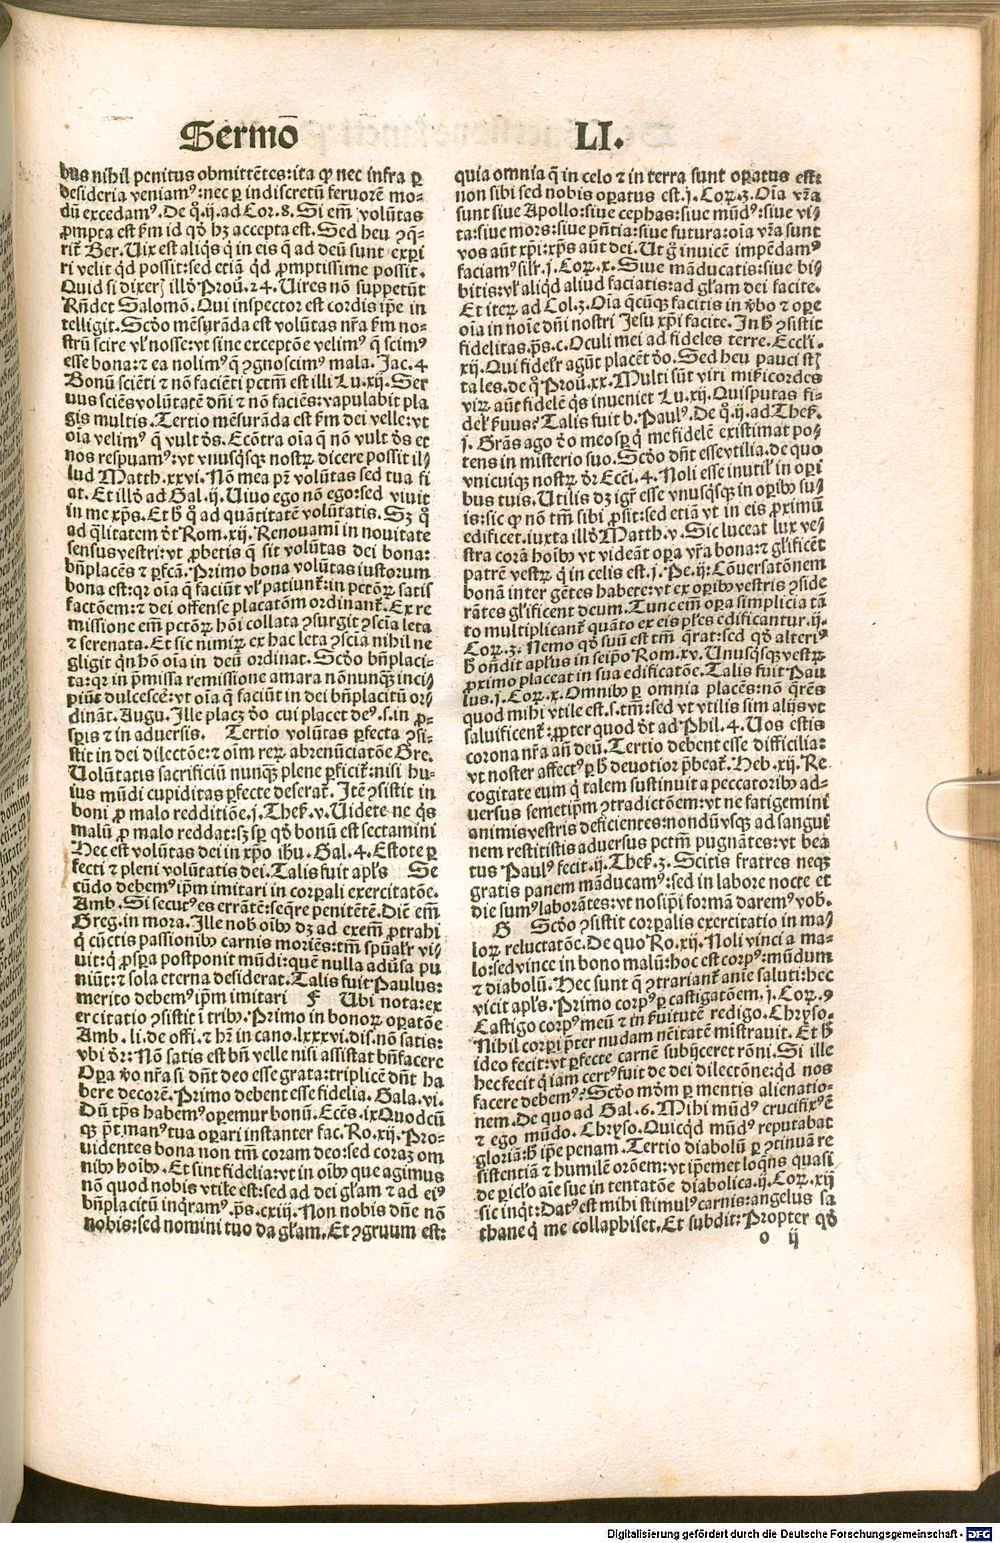 Sermō LI.
bus nihil penitus obmittētes: ita ꝙ nec infra ꝑ
desideria veniamꝰ: nec ꝑ indiscretū feruorē mo-
dū excedamꝰ. De q̊. ij. ad Cor. 8. Si em̄ volūtas
ꝓmpta est ẜm id qđ hꝫ accepta est. Sed heu ꝯq̄-
rit̄ Ber. Uix est aliqͥs q̇ in eis q̄ ad deū sunt exꝑi
ri velit qͥd possit: sed etiā qͥd ꝓmptissime possit.
Quid si dixerꝭ illđ Prou. 24. Uires nō suppetūt
Rn̄det Salomō. Qui inspector est cordis ip̄e in
telligit. Scđo mēsurāda est volūtas nr̄a ẜm no-
strū scire vl̓ nosse: vt sine exceptōe velimꝰ q̄ scimꝰ
esse bona: ⁊ ea nolimꝰ q̄ ꝯgnoscimꝰ mala. Jac. 4
Bonū sciēti ⁊ nō faciēti pctm̄ est illi Lu. xij. Ser
uus sciēs volūtatē dn̄i ⁊ nō faciēs: vapulabit pla
gis multis. Tertio mēsurāda est ẜm dei velle: vt
oīa velimꝰ q̄ vult dꝰs. Ecōtra oīa q̄ nō vult dꝰs et
nos respuamꝰ: vt vnusqͥsqꝫ nostrꝝ dicere possit il-
lud Matth. xxvi. Nō mea pr̄ volūtas sed tua fi
at. Et illđ ad Gal. ij. Uiuo ego nō ego: sed viuit
in me xp̄s. Et ħ q̊ ad quātitatē volūtatis. Sꝫ q̊
ad q̄litatem dr̄t Rom. xij. Renouamī in nouitate
sensus vestri: vt ꝓbetis q̄ sit volūtas dei bona:
bn̄placēs ⁊ ꝑfcā. Primo bona volūtas iustorum
bona est: qꝛ oīa q̄ faciūt vl̓ patiunt̄: in pctōꝝ satis
factōem: ⁊ dei offense placatōm ordinant̄. Ex re
missione em̄ pctōꝝ hōi collata ꝯsurgit ꝯscīa leta
⁊ serenata. Et sic nimiꝝ ex hac leta ꝯscīa nihil ne
gligit qͥn hō oīa in deū ordinat. Scđo bn̄placi-
ta: qꝛ in p̄missa remissione amara nōnunqꝫ inci-
piūt dulcescē: vt oīa q̄ faciūt in dei bn̄placitū or-
dināt. Augu. Ille placꝫ đo cui placet deꝰ. s. in ꝓ-
sꝑis ⁊ in aduersis. Tertio volūtas ꝑfecta ꝯsi-
stit in dei dilectōe: ⁊ oīm reꝝ abrenūciatōe Gre.
Uolūtatis sacrificiū nunqꝫ plene ꝑficit̄: nisi hu-
ius mūdi cupiditas ꝑfecte deserat̄. Itē ꝯsistit in
boni ꝓ malo redditiōe. j. Thess. v. Uidete ne qͥs
malū ꝓ malo reddat: sꝫ sꝑ qđ bonū est sectamini
Hec est volūtas dei in xp̄o ihū. Gal. 4. Estote ꝑ
fecti ⁊ pleni volūtatis dei. Talis fuit apl̓s Se
cūdo debemꝰ ip̄m imitari in corꝑali exercitatōe.
Amb. Si secutꝰ es errātē: seq̄re penitētē. Diē em̄
Greg. in mora. Ille nob̓ oībꝰ dꝫ ad exem̄ ꝓtrahi
q̇ cūctis passionibꝰ carnis moriēs: tm̄ spūalr̄ vi-
uit: q̇ ꝓspa postponit mūdi: quē nulla aduersa pu
niūt: ⁊ sola eterna desiderat. Talis fuit Paulus:
merito debemꝰ ip̄m imitari F Ubi nota: ex
ercitatio ꝯsistit ī tribꝰ. Primo in bonoꝝ oꝑatōe
Amb. li. de offi. ⁊ hr̄ in cano. lxxxvi. dis. nō satis:
vbi dr̄: Nō satis est bn̄ velle nisi assistat bn̄facere
Oꝑa v̊o nr̄a si dn̄t deo esse grata: triplicē dn̄t ha
bere decorē. Primo debent esse fidelia. Gala. vi.
Dū tp̄s habemꝰ oꝑemur bonū. Eccēs. ix Quodcū
qꝫ p̄t manꝰ tua oꝑari instanter fac. Ro. xij. Pro-
uidentes bona non tm̄ coram deo: sed coraꝫ om
nibꝰ hoībꝰ. Et sint fidelia: vt in oībꝰ que agimus
nō quod nobis vtile est: sed ad dei gl̓am ⁊ ad eiꝰ
bn̄placitū inqͥramꝰ. p̄s. cxiij. Non nobis dn̄e nō
nobis: sed nomini tuo da gl̓am. Et ꝯgruum est:
quia omnia q̄ in celo ⁊ in terra sunt oꝑatus est:
non sibi sed nobis oꝑatus est. j. Coꝝ. 3. Oīa vr̄a
sunt siue Apollo: siue cephas: siue mūdꝰ: siue vi-
ta: siue mors: siue p̄ntia: siue futura: oīa vr̄a sunt
vos aut̄ xp̄i: xp̄s aut̄ dei. Ut g̊ inuicē impēdamꝰ
faciamꝰ silr̄. j. Coꝝ. x. Siue māducatis: siue bi-
bitis: vl̓ aliqͥd aliud faciatis: ad gl̓am dei facite.
Et iteꝝ ad Col. 3. Oīa qͥcūqꝫ facitis in v̓bo ⁊ oꝑe
oīa in noīe dn̄i nostri Jesu xp̄i facite. In ħ ꝯsistit
fidelitas. p̄s. c. Oculi mei ad fideles terre. Eccl̓i.
xij. Qui fidel̓r agūt placēt đo. Sed heu pauci st̄
tales. de q̊ Prou. xx. Multi sūt viri mīcordes
viꝝ aūt fidelē qͥs inueniet Lu. xij. Quisputas fi-
del̓ ẜuus? Talis fuit b. Paulꝰ. De q̊. ij. ad Thes̄.
j. Grās ago đo meo sꝑ q̇ me fidelē existimat po-
tens in misterio suo. Scđo dn̄t esse vtilia. de quo
vnicuiqꝫ nostrꝝ dr̄ Eccl̓. 4. Noli esse inutil̓ in oꝑi
bus tuis. Utilis dꝫ igr̄ esse vnusqͥsqꝫ in oꝑibꝰ su-
is: sic ꝙ nō tm̄ sibi ꝓsit: sed etiā vt in eis ꝓximū
edificet. iuxta illđ Matth. v. Sic luceat lux ve-
stra corā hoībꝰ vt videāt oꝑa vr̄a bona: ⁊ gl̓ificēt
patrē vestꝝ q̇ in celis est. j. Pe. ij: Cōuersatōnem
bonā inter gētes habete: vt ex oꝑibꝰ vestris ꝯside
rātes gl̓ificent deum. Tunc em̄ oꝑa simplicia tā
to multiplicant̄ quāto ex eis pl̓es edificantur. ij.
Coꝝ. 3. Nemo qđ suū est tm̄ q̄rat: sed qđ alteriꝰ
ħ on̄dit apl̓us in seip̄o Rom. xv. Unusqͥsqꝫ vestꝝ
ꝓximo placeat in sua edificatōe. Talis fuit Pau
lus. j. Coꝝ. x. Omnibꝰ ꝑ omnia placēs: nō q̄rēs
quod mihi vtile est. s. tm̄: sed vt vtilis sim alijs vt
saluificent̄: ꝓpter quod dr̄t ad Phil. 4. Uos estis
corona nr̄a an̄ deū. Tertio debent esse difficilia:
vt noster affectꝰ ꝑ ħ deuotior p̄beat̄. Heb. xij. Re
cogitate eum q̇ talem sustinuit a peccatoribꝰ ad-
uersus semetip̄m ꝯtradictōem: vt ne fatigemini
animis vestris deficientes: nondū vsqꝫ ad sangui
nem restitistis aduersus pctm̄ pugnātes: vt bea
tus Paulꝰ fecit. ij. Thes̄. 3. Scitis fratres neqꝫ
gratis panem māducamꝰ: sed in labore nocte et
die sumꝰ laborātes: vt nosip̄i formā daremꝰ vob̓.
G Scđo ꝯsistit corꝑalis exercitatio in ma-
loꝝ reluctatōe. De quo Ro. xij. Noli vinci a ma-
lo: sed vince in bono malū: hoc est corpꝰ: mūdum
⁊ diabolū. Hec sunt q̄ ꝯtrariant̄ anīe saluti: hec
vicit apl̓s. Primo corpꝰ ꝑ castigatōem. j. Coꝝ. 9
Castigo corpꝰ meū ⁊ in ẜuitutē redigo. Chryso.
Nihil corꝑi p̄ter nudam nc̄itatē mīstrauit. Et ħ
ideo fecit: vt ꝑfecte carnē subijceret rōni. Si ille
hec fecit q̇ iam certꝰ fuit de dei dilectōne: qͥd nos
facere debemꝰ? Scđo mōm ꝑ mentis alienatio-
nem. De quo ad Gal. 6. Mihi mūdꝰ crucifixꝰ ē
⁊ ego mūdo. Chryso. Quicqͥd mūdꝰ reputabat
gloriā: ħ ip̄e penam. Tertio diabolū ꝑ ꝯtinuā re
sistentiā ⁊ humilē orōem: vt ip̄emet loqͥns quasi
de pericl̓o aīe sue in tentatōe diabolica. ij. Coꝝ. xij
sic inqͥt: Datꝰ est mihi stimulꝰ carnis: angelus sa
thane q̇ me collaphiset. Et subdit: Propter qđ
o ij
Digitalisierung gefördert durch die Deutsche Forschungsgemeinschaft - DFG